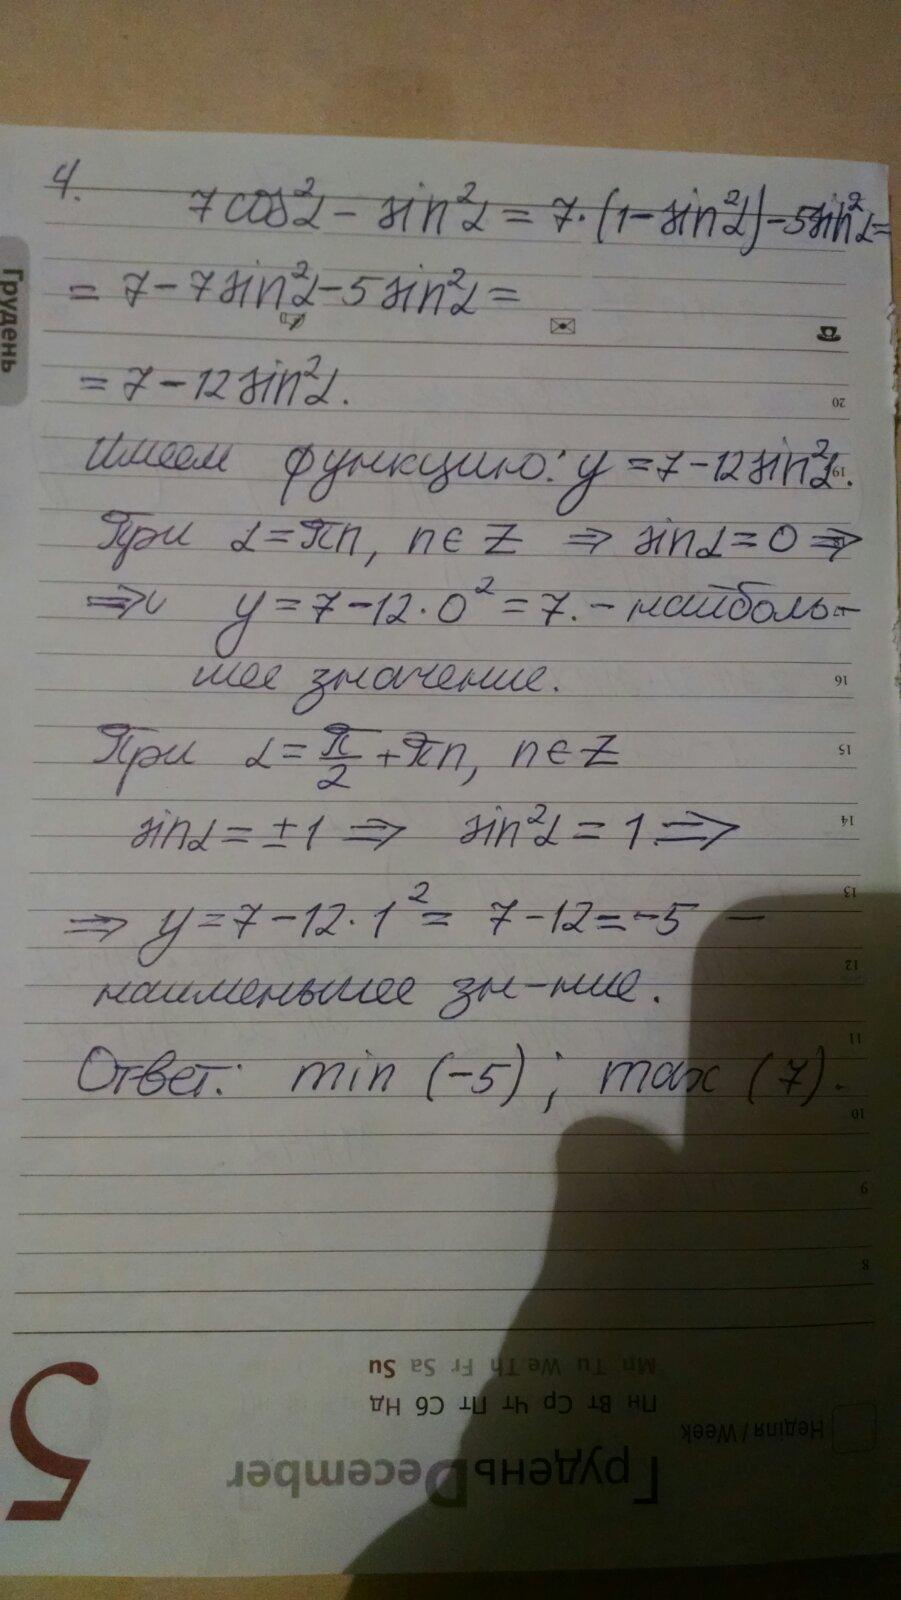 4.
7cos²α - sin²α = 7·(1-sin²α)-5sin²α=
= 7-7sin²α-5sin²α=
= 7-12sin²α.
Имеем функцию: y=7-12sin²α.
При α=πn, n∈Z ⇒ sinα=0 ⇒
⇒ y=7-12·0²=7. - наиболь-
шее значение.
При α=π/2+πn, n∈Z
sinα=±1 ⇒ sin²α=1 ⇒
⇒ y=7-12·1²= 7-12=-5 —
наименьшее зн-ние.
Ответ: min (-5); max (7).
Грудень
20
19
16
15
14
13
12
11
10
9
8
Mn Tu We Th Fr Sa Su
Пн Вт Ср Чт Пт Сб Нд
Неділя / Week
Грудень December
5